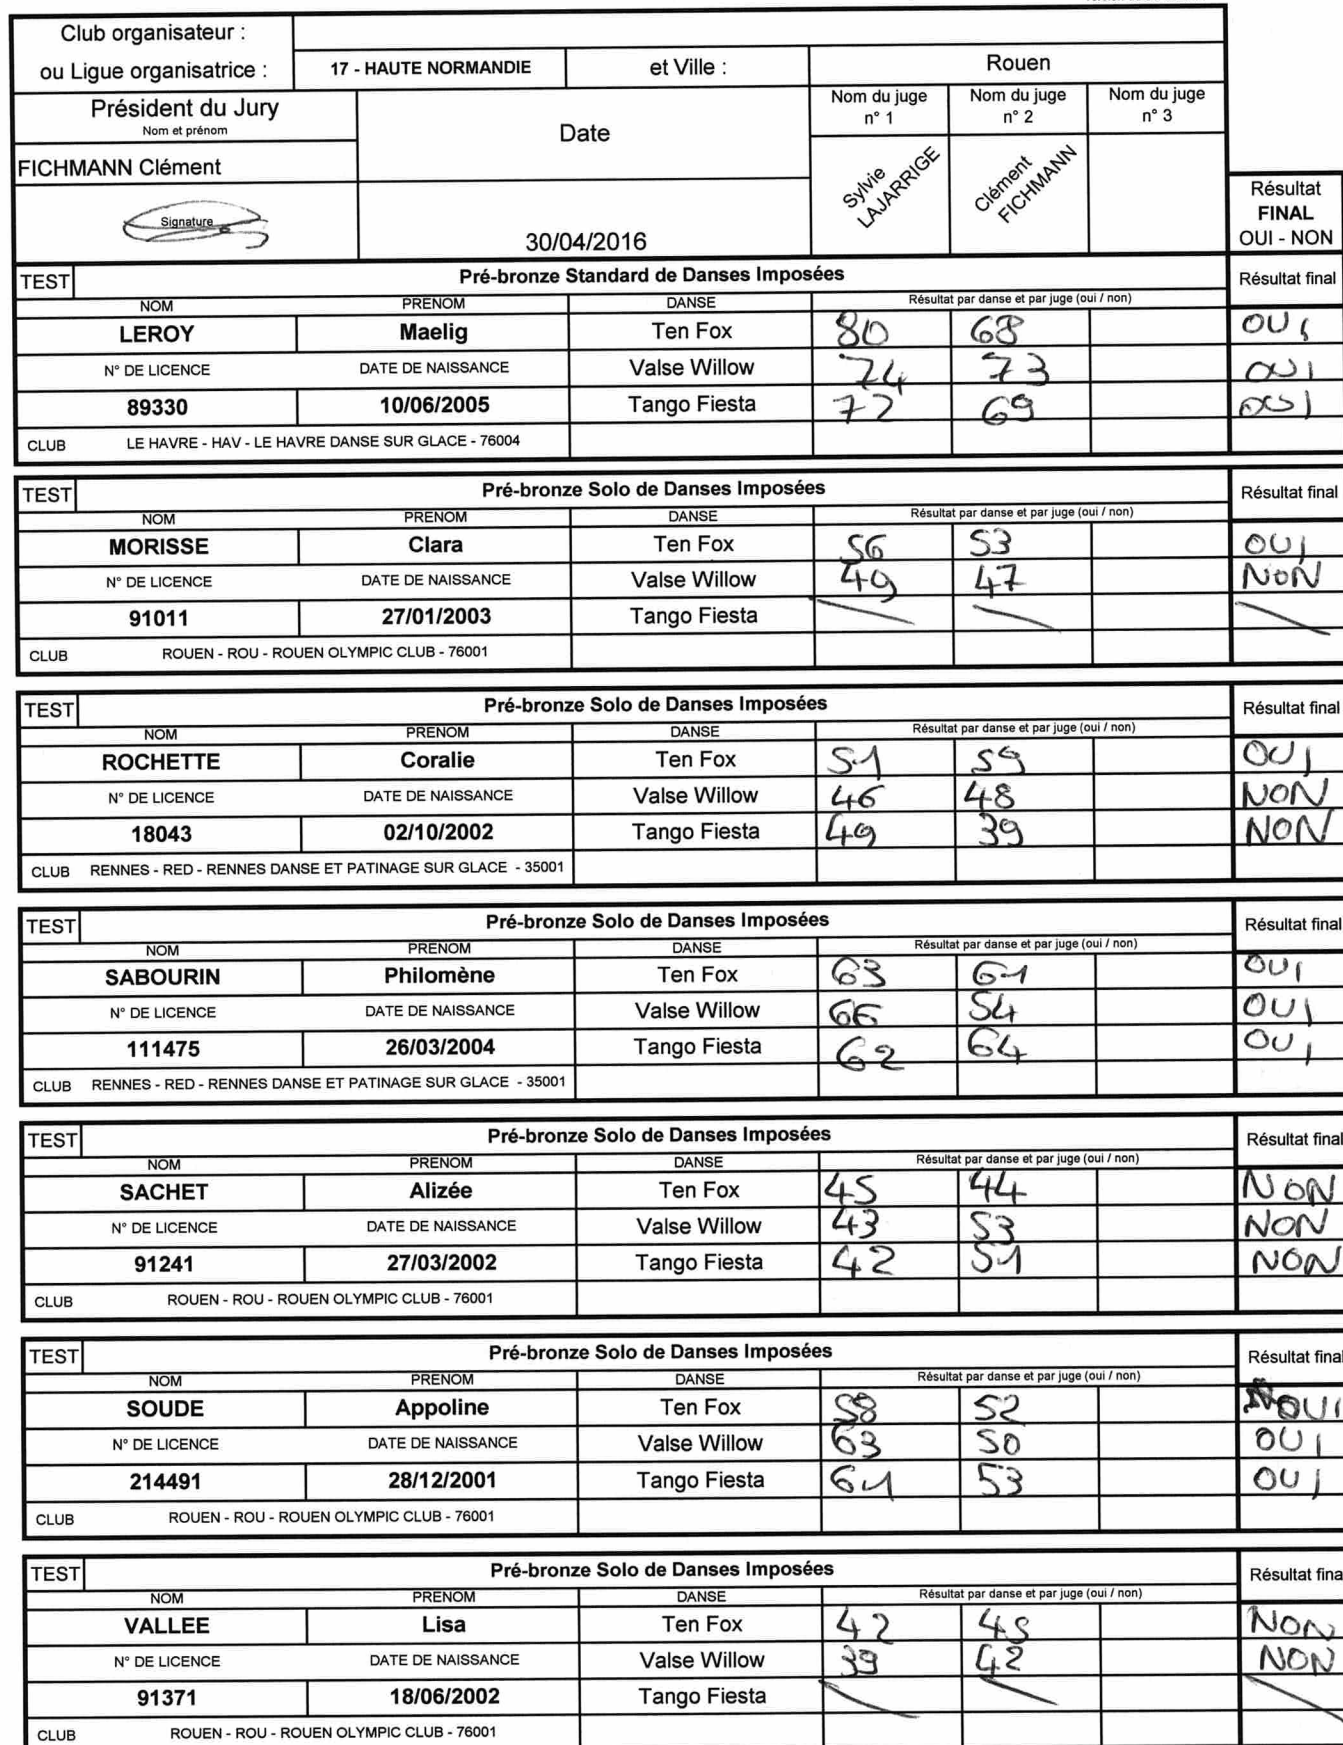 Club organisateur :
ou Ligue organisatrice : 17 - HAUTE NORMANDIE et Ville : Rouen
Président du Jury Date Nom du juge n° 1 Nom du juge n° 2 Nom du juge n° 3
Nom et prénom
FICHMANN Clément Sylvie LAJARRIGE Clément FICHMANN
Signature 30/04/2016 Résultat FINAL OUI - NON
TEST Pré-bronze Standard de Danses Imposées Résultat final
NOM PRENOM DANSE Résultat par danse et par juge (oui / non)
LEROY Maelig Ten Fox 80 68 OUI
N° DE LICENCE DATE DE NAISSANCE Valse Willow 74 73 OUI
89330 10/06/2005 Tango Fiesta 72 69 OUI
CLUB LE HAVRE - HAV - LE HAVRE DANSE SUR GLACE - 76004
TEST Pré-bronze Solo de Danses Imposées Résultat final
NOM PRENOM DANSE Résultat par danse et par juge (oui / non)
MORISSE Clara Ten Fox 56 53 OUI
N° DE LICENCE DATE DE NAISSANCE Valse Willow 49 47 NON
91011 27/01/2003 Tango Fiesta
CLUB ROUEN - ROU - ROUEN OLYMPIC CLUB - 76001
TEST Pré-bronze Solo de Danses Imposées Résultat final
NOM PRENOM DANSE Résultat par danse et par juge (oui / non)
ROCHETTE Coralie Ten Fox 51 59 OUI
N° DE LICENCE DATE DE NAISSANCE Valse Willow 46 48 NON
18043 02/10/2002 Tango Fiesta 49 39 NON
CLUB RENNES - RED - RENNES DANSE ET PATINAGE SUR GLACE - 35001
TEST Pré-bronze Solo de Danses Imposées Résultat final
NOM PRENOM DANSE Résultat par danse et par juge (oui / non)
SABOURIN Philomène Ten Fox 63 61 OUI
N° DE LICENCE DATE DE NAISSANCE Valse Willow 66 54 OUI
111475 26/03/2004 Tango Fiesta 62 64 OUI
CLUB RENNES - RED - RENNES DANSE ET PATINAGE SUR GLACE - 35001
TEST Pré-bronze Solo de Danses Imposées Résultat final
NOM PRENOM DANSE Résultat par danse et par juge (oui / non)
SACHET Alizée Ten Fox 45 44 NON
N° DE LICENCE DATE DE NAISSANCE Valse Willow 43 53 NON
91241 27/03/2002 Tango Fiesta 42 51 NON
CLUB ROUEN - ROU - ROUEN OLYMPIC CLUB - 76001
TEST Pré-bronze Solo de Danses Imposées Résultat final
NOM PRENOM DANSE Résultat par danse et par juge (oui / non)
SOUDE Appoline Ten Fox 58 52 OUI
N° DE LICENCE DATE DE NAISSANCE Valse Willow 63 50 OUI
214491 28/12/2001 Tango Fiesta 61 53 OUI
CLUB ROUEN - ROU - ROUEN OLYMPIC CLUB - 76001
TEST Pré-bronze Solo de Danses Imposées Résultat fina
NOM PRENOM DANSE Résultat par danse et par juge (oui / non)
VALLEE Lisa Ten Fox 42 45 NON
N° DE LICENCE DATE DE NAISSANCE Valse Willow 39 42 NON
91371 18/06/2002 Tango Fiesta
CLUB ROUEN - ROU - ROUEN OLYMPIC CLUB - 76001